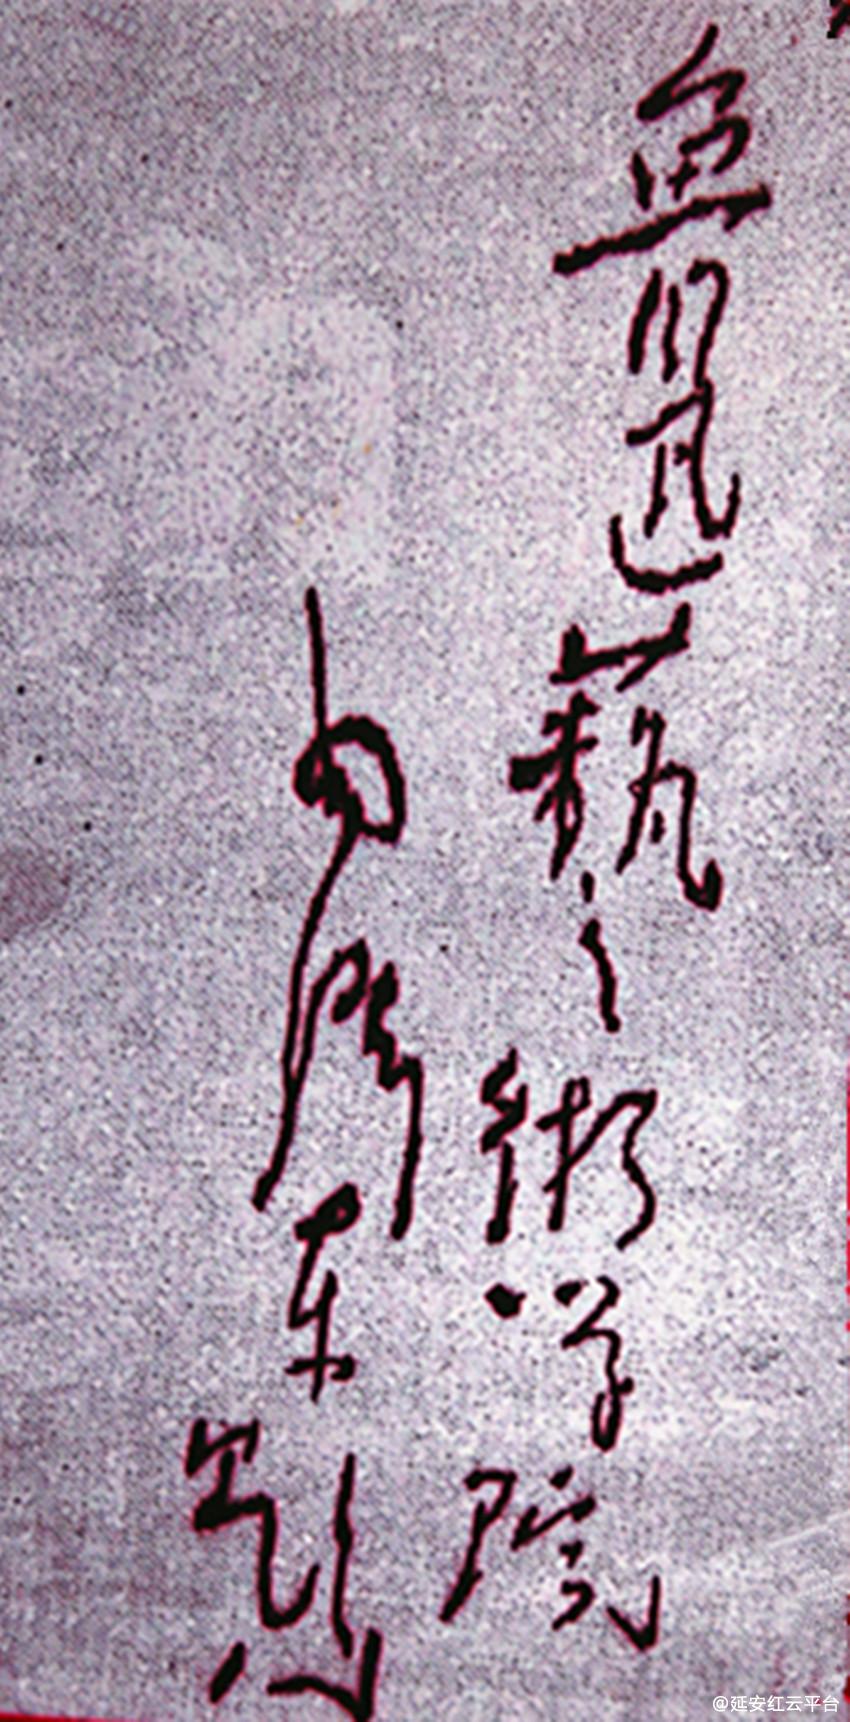 鲁迅藝術学院
毛澤东题
@延安红云平台